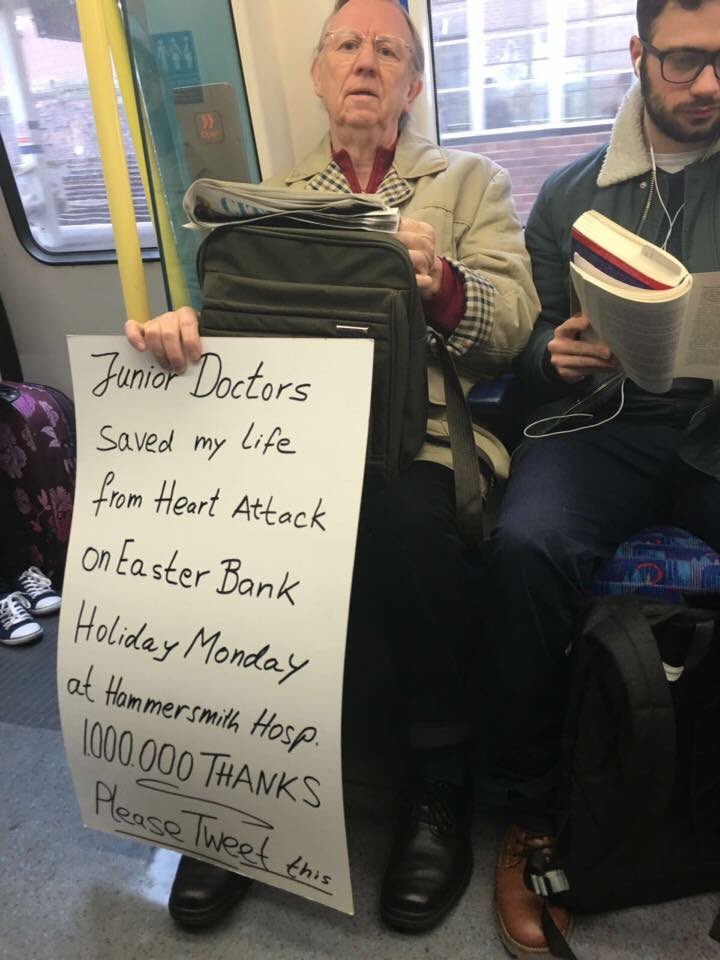 Junior Doctors
Saved my life
from Heart Attack
on Easter Bank
Holiday Monday
at Hammersmith Hosp.
1.000.000 THANKS
Please Tweet this